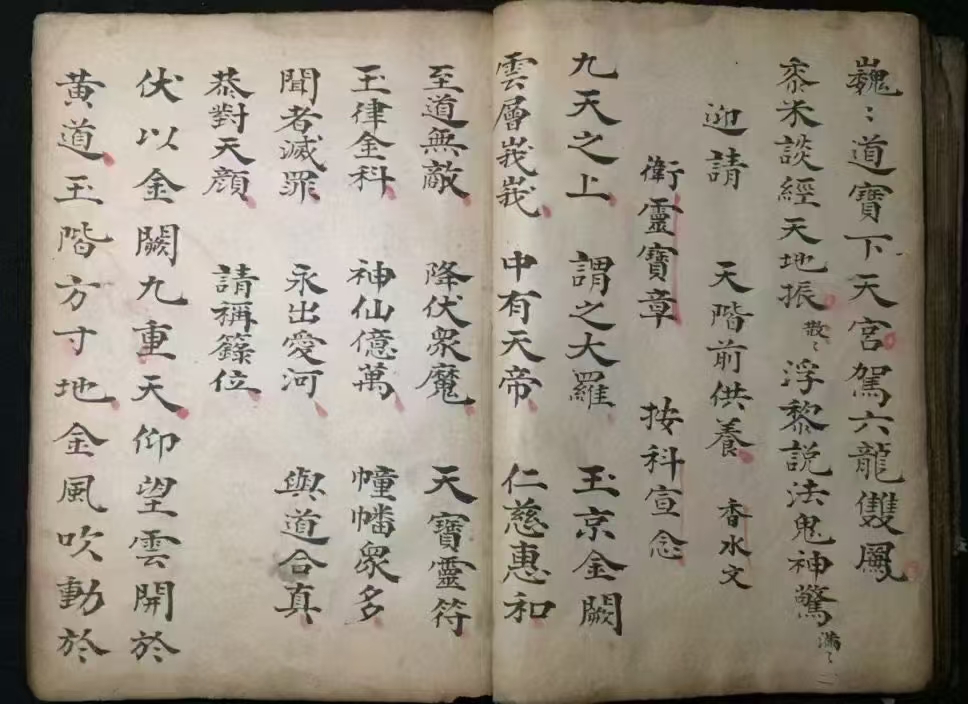 巍〻道寶下天宮駕六龍雙鳳
黍米談經天地振散〻浮黎説法鬼神驚滿〻
迎請 天階前供養 香水文
衛靈寶章 按科宣念
九天之上 謂之大羅 玉京金闕
雲層峩峩 中有天帝 仁慈惠和
至道無敵 降伏衆魔 天寶靈符
玉律金科 神仙億萬 幢幡衆多
聞者滅罪 永出愛河 與道合真
恭對天顔 請稱籙位
伏以金闕九重天仰望雲開於
黄道玉階方寸地金風吹動於